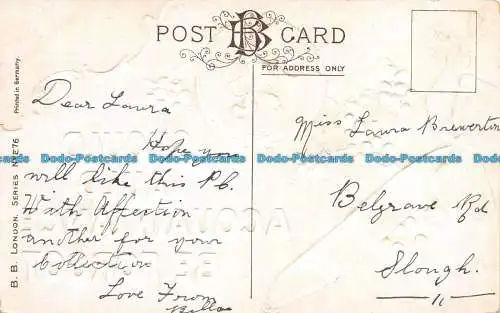 POST BB CARD
FOR ADDRESS ONLY
Printed in Germany.
B. B. LONDON. SERIES No E76
Dear Laura
Hope you
will like this P.C.
With Affection
another for your
Collection
Love From
Miss Laura Brewerton
Belgrave Rd
Slough.
Dodo-Postcards Dodo-Postcards Dodo-Postcards Dodo-Postcards
Dodo-Postcards Dodo-Postcards Dodo-Postcards Dodo-Postcards